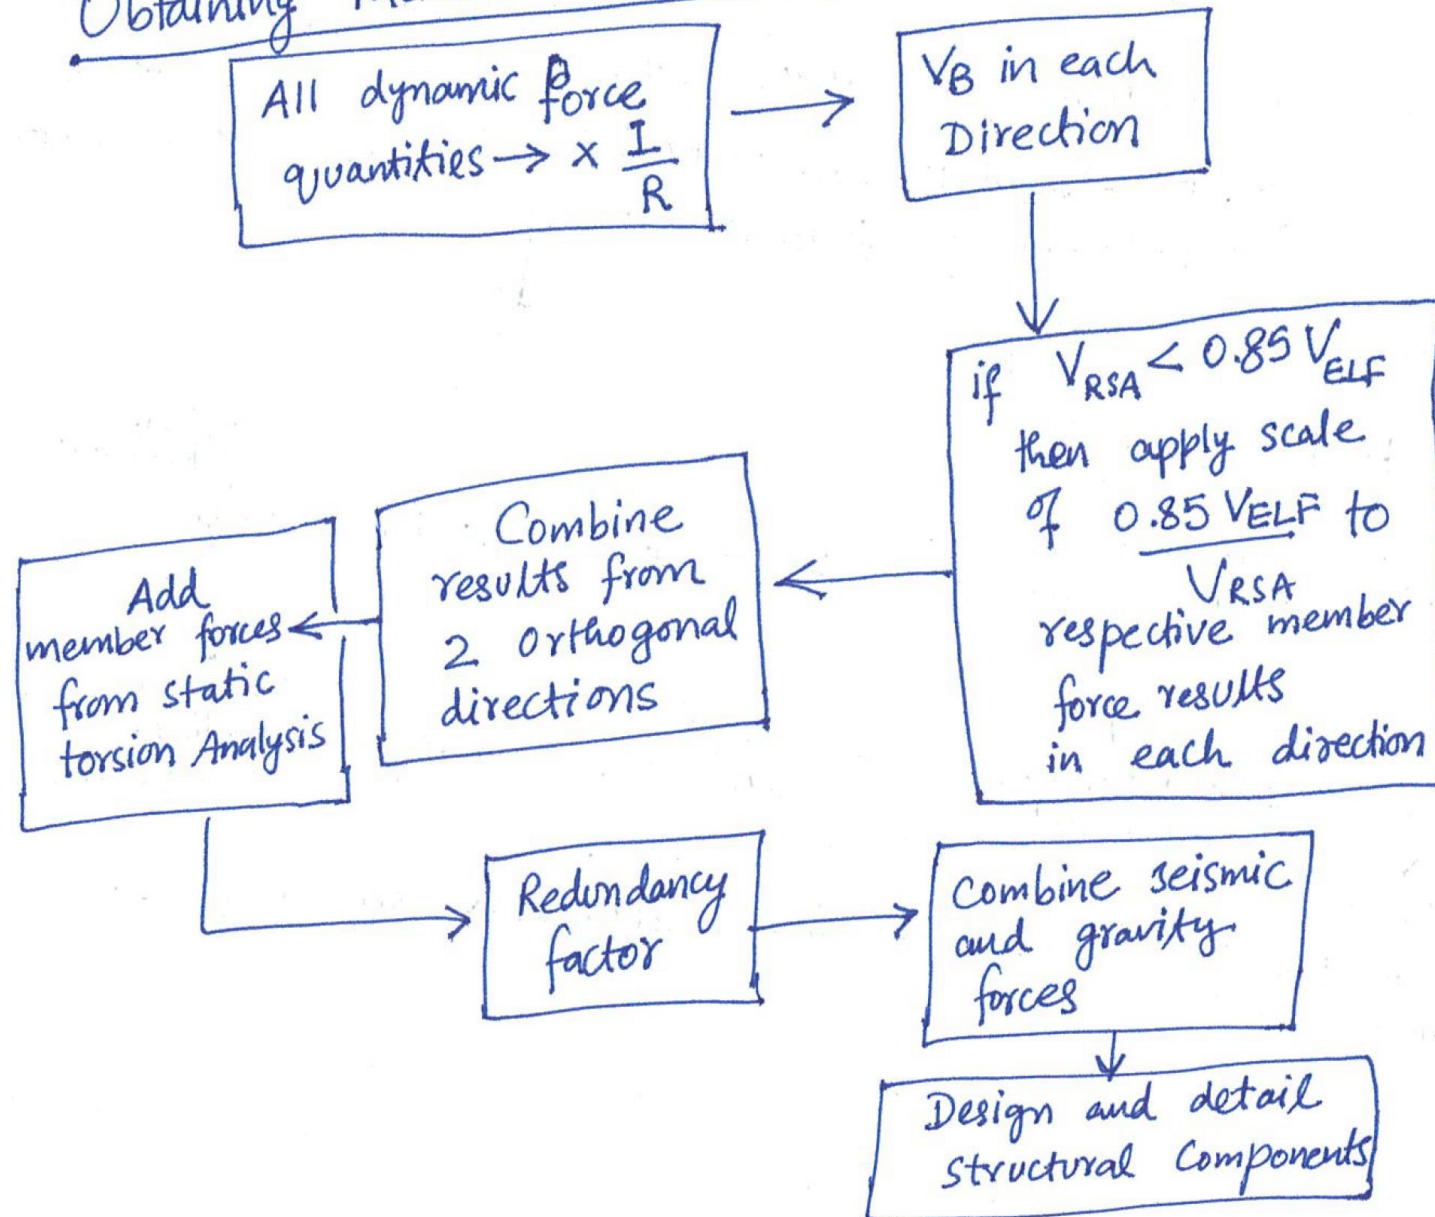 Obtaining
All dynamic force
quantities → × I/R
VB in each
Direction
if VRSA < 0.85 VELF
then apply scale
of 0.85 VELF to
VRSA
respective member
force results
in each direction
Combine
results from
2 orthogonal
directions
Add
member forces
from static
torsion Analysis
Redundancy
factor
Combine seismic
and gravity
forces
Design and detail
structural components